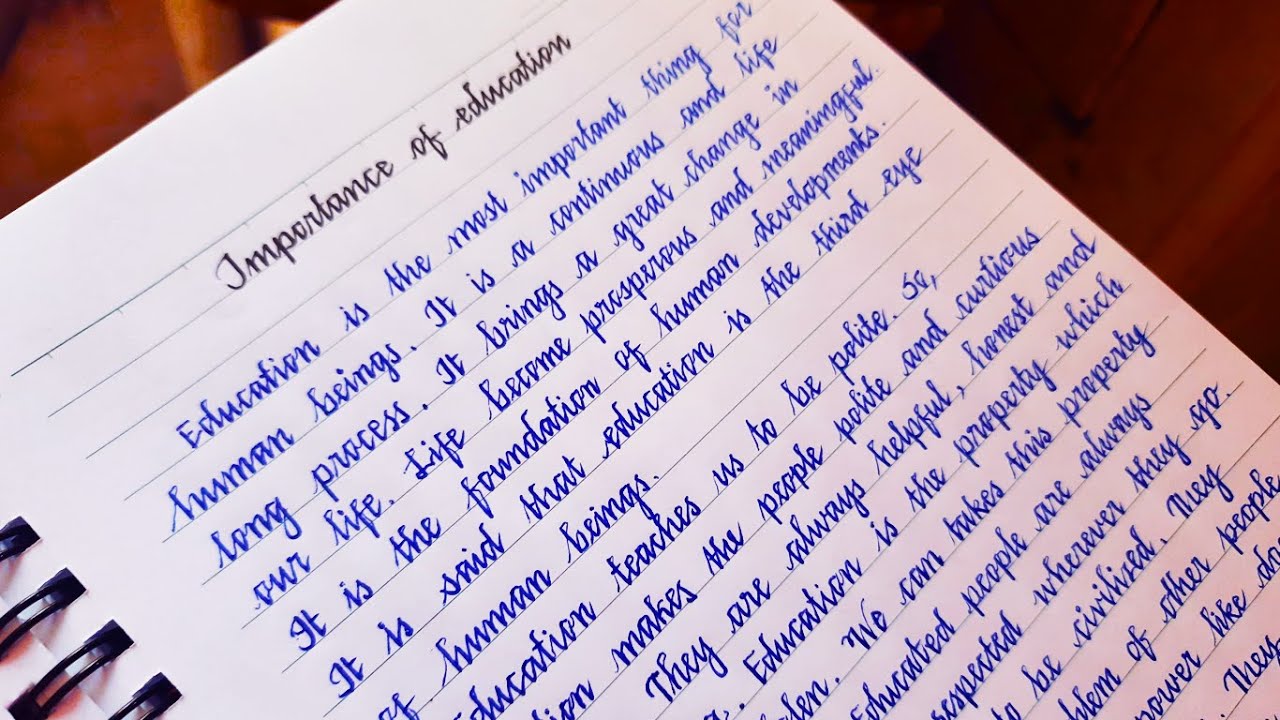 Importance of education
Education is the most important thing for
human beings. It is a continuous and life
long process. It brings a great change in
our life. Life become prosperous and meaningful.
It is the foundation of human developments.
It is said that education is the third eye
of human beings.
Education teaches us to be polite. So,
makes the people polite and curtious
They are always helpful, honest and
Education is the property which
We can takes this property
Educated people are always
respected wherever they go.
to be civilized. They
of other people
power like
They